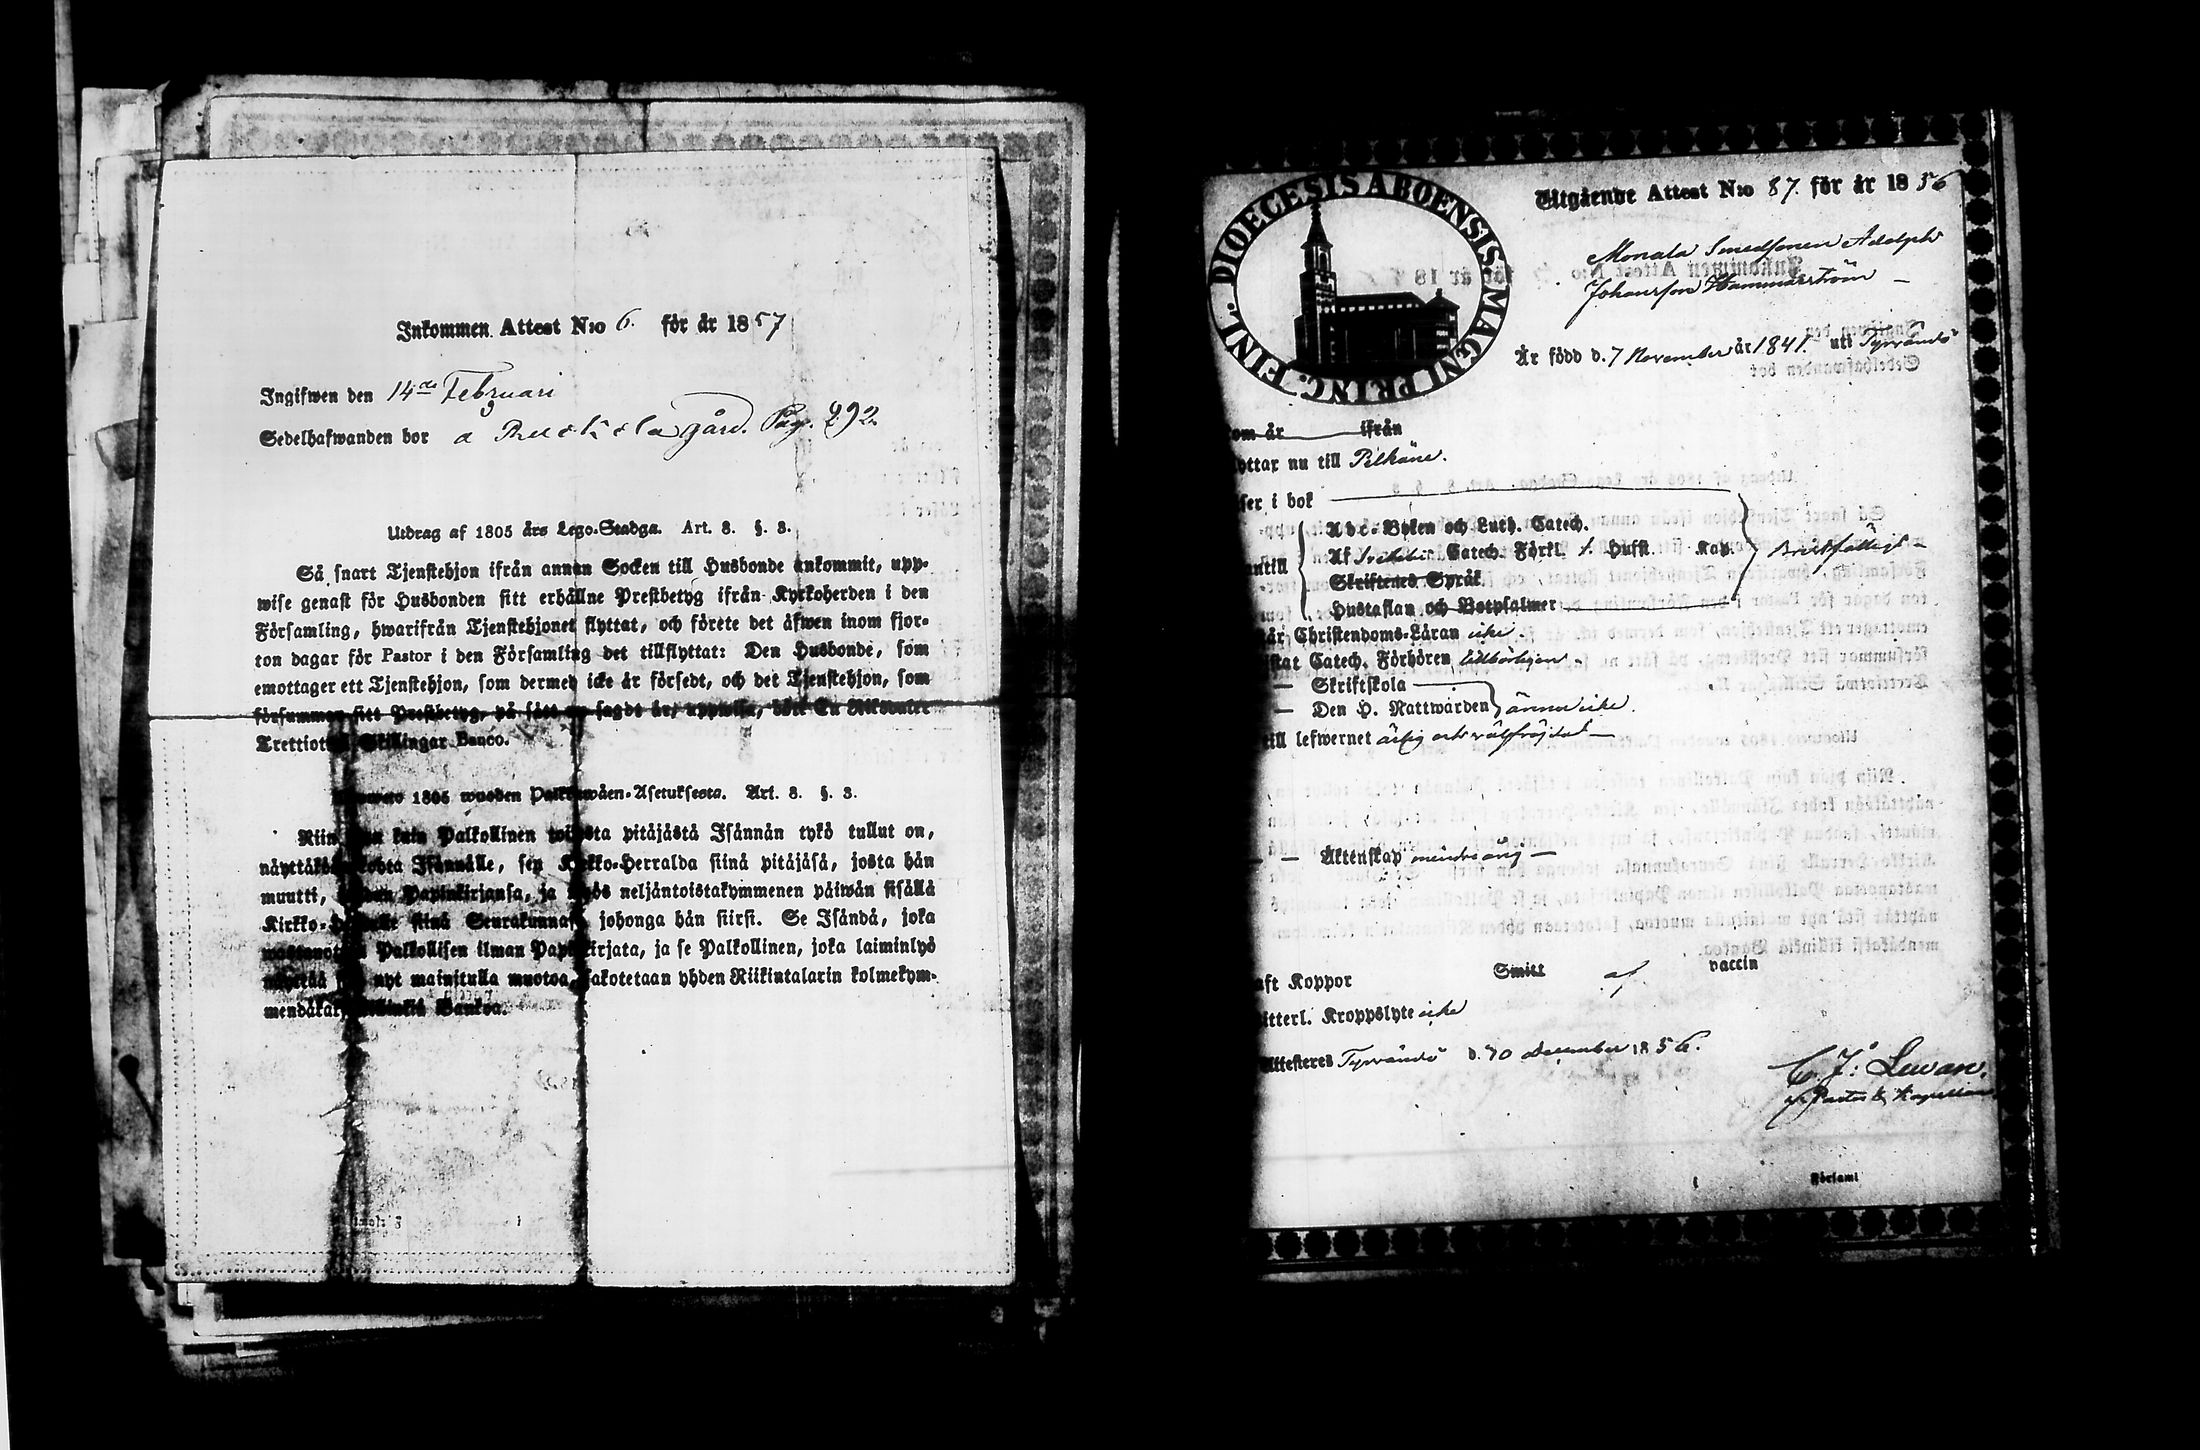 Inkommen Attest N:o 6. för år 1857
Ingifwen den 14de Februari
Sedelhafwanden bor å Ruokola gård. Pag. 292.
Utdrag af 1805 års Lego-Stadga. Art. 8. §. 3.
Så snart Tjenstehjon ifrån annan Socken till Husbonde ankommit, upp-
wise genast för Husbonden sitt erhållne Prestbetyg ifrån Kyrkoherden i den
Församling, hwarifrån Tjenstehjonet flyttat, och förete det äfwen inom fjor-
ton dagar för Pastor i den Församling det tillflyttat: Den Husbonde, som
emottager ett Tjenstehjon, som dermed icke är försedt, och det Tjenstehjon, som
försummar sitt Prestbetyg, på sätt nu sagdt är, uppwisa, böte En Riksdaler
Trettiotvå Skillingar Banco.
1805 wuoden Palkkawäen-Asetuksesta. Art. 8. §. 3.
Niin pian kuin Palkollinen toisesta pitäjästä Isännän tykö tullut on,
näyttäkään kohta Isännälle, sen Kirkko-Herralda siinä pitäjäsä, josta hän
muutti, saadun Papinkirjansa, ja myös neljäntoistakymmenen päiwän sisällä
Kirkko-Herralle siinä Seurakunnasa johonga hän siirsi. Se Isändä, joka
wastanottaa Palkollisen ilman Papinkirjata, ja se Palkollinen, joka laiminlyö
näyttää sitä nyt mainitulla muotoa, sakotetaan yhden Riikintalarin kolmekym-
mendäkaksi killinkiä Bankoa.
DIOECESIS ABOENSIS MAGNI PRINC. FINL.
Utgående Attest N:o 87. för år 1856
Monala Smedsonen Adolph
Johansson Hammarström
Är född d. 7 November år 1841. uti Tyrvändö
om år ifrån
yttar nu till Pelkäne.
ser i bok
antill
Abc-Boken och Luth. Catech.
Af Svebelii Catech. Förkl. 1. Hufst. Kap.
Skriftenes Språk
Hustaflan och Botpsalmer
Bristfälligt
år Christendoms-Läran icke.
stat Catech. Förhören tillbörligen.
— Skriftskola
— Den H. Nattwarden ännu icke.
till lefwernet ärlig och välfrejdad
— — Äktenskap minderårig
aft Koppor Smitt af vaccin
itterl. Kroppslyte icke
Attesteres Tyrvändö d. 30 december 1856.
C. J. Lewan.
Församl